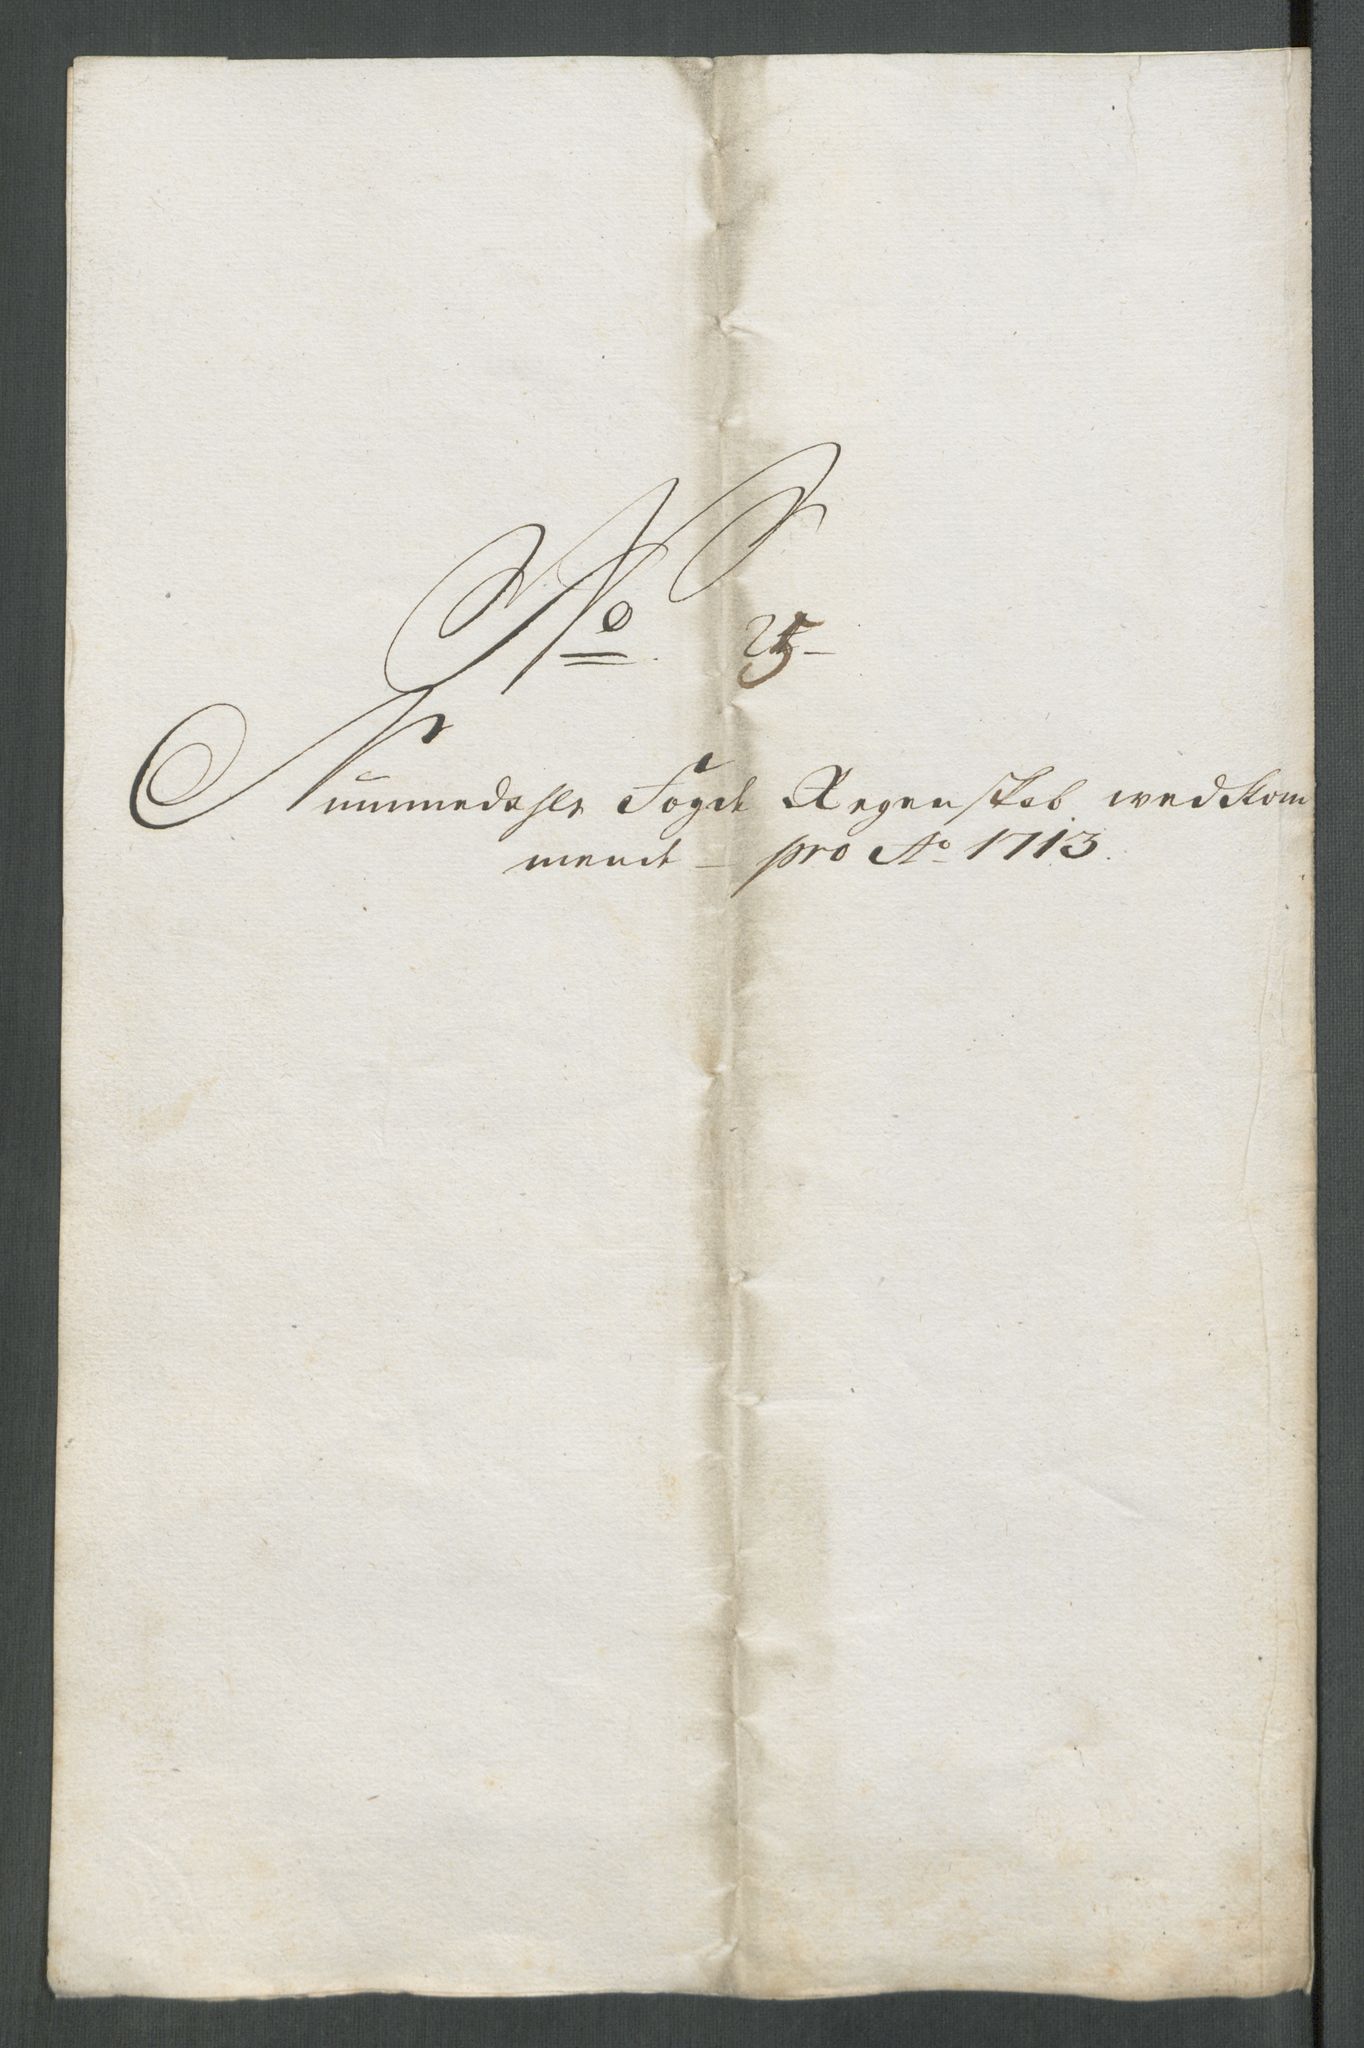 No 25-
Nummedahls Fogd Regenskab wedkom
mend - pro Ao 1713.